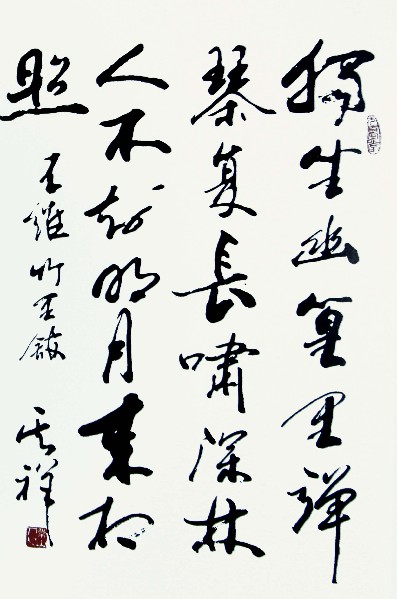 獨坐幽篁里弹
琴复長嘯深林
人不知明月来相
照
王維竹里館
祥